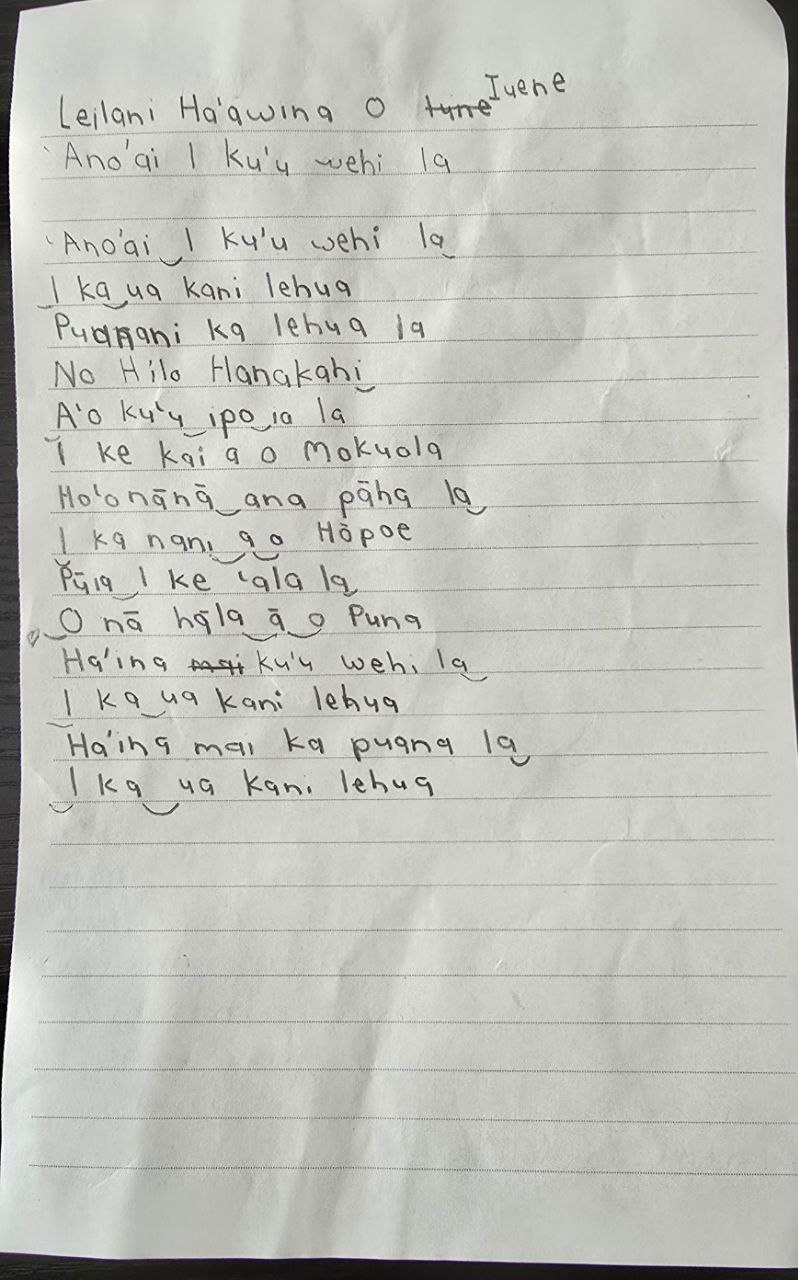 Leilani Ha'awina O Iuene
'Ano'ai I ku'u wehi la
'Ano'ai I ku'u wehi la
I ka ua kani lehua
Puanani ka lehua la
No Hilo Hanakahi
A'o ku'u ipo ia la
I ke kai a o Mokuola
Ho'onānā ana pāha la
I ka nani a o Hōpoe
Pūia I ke 'ala la
O nā hāla ā o Puna
Ha'ina ku'u wehi la
I ka ua kani lehua
Ha'ina mai ka puana la
I ka ua kani lehua